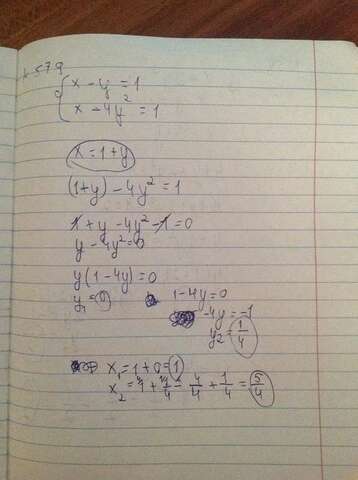 579
{ x - y = 1
x - 4y² = 1
x = 1 + y
(1+y) - 4y² = 1
1 + y - 4y² - 1 = 0
y - 4y² = 0
y(1 - 4y) = 0
y₁ = 0 1 - 4y = 0
-4y = -1
y₂ = 1/4
x₁ = 1 + 0 = 1
x₂ = 1 + 1/4 = 4/4 + 1/4 = 5/4